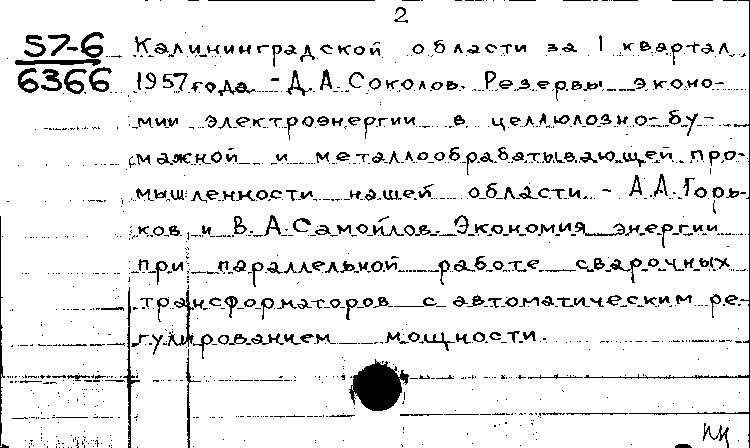 2
57-6 Калининградской области за I квартал
6366 1957 года. - Д.А.Соколов. Резервы эконо-
мии электроэнергии в целлюлозно-бу-
мажной и металлообрабатывающей про-
мышленности нашей области. - А.А.Горь-
ков и В.А.Самойлов. Экономия энергии
при параллельной работе сварочных
трансформаторов с автоматическим ре-
гулированием мощности.